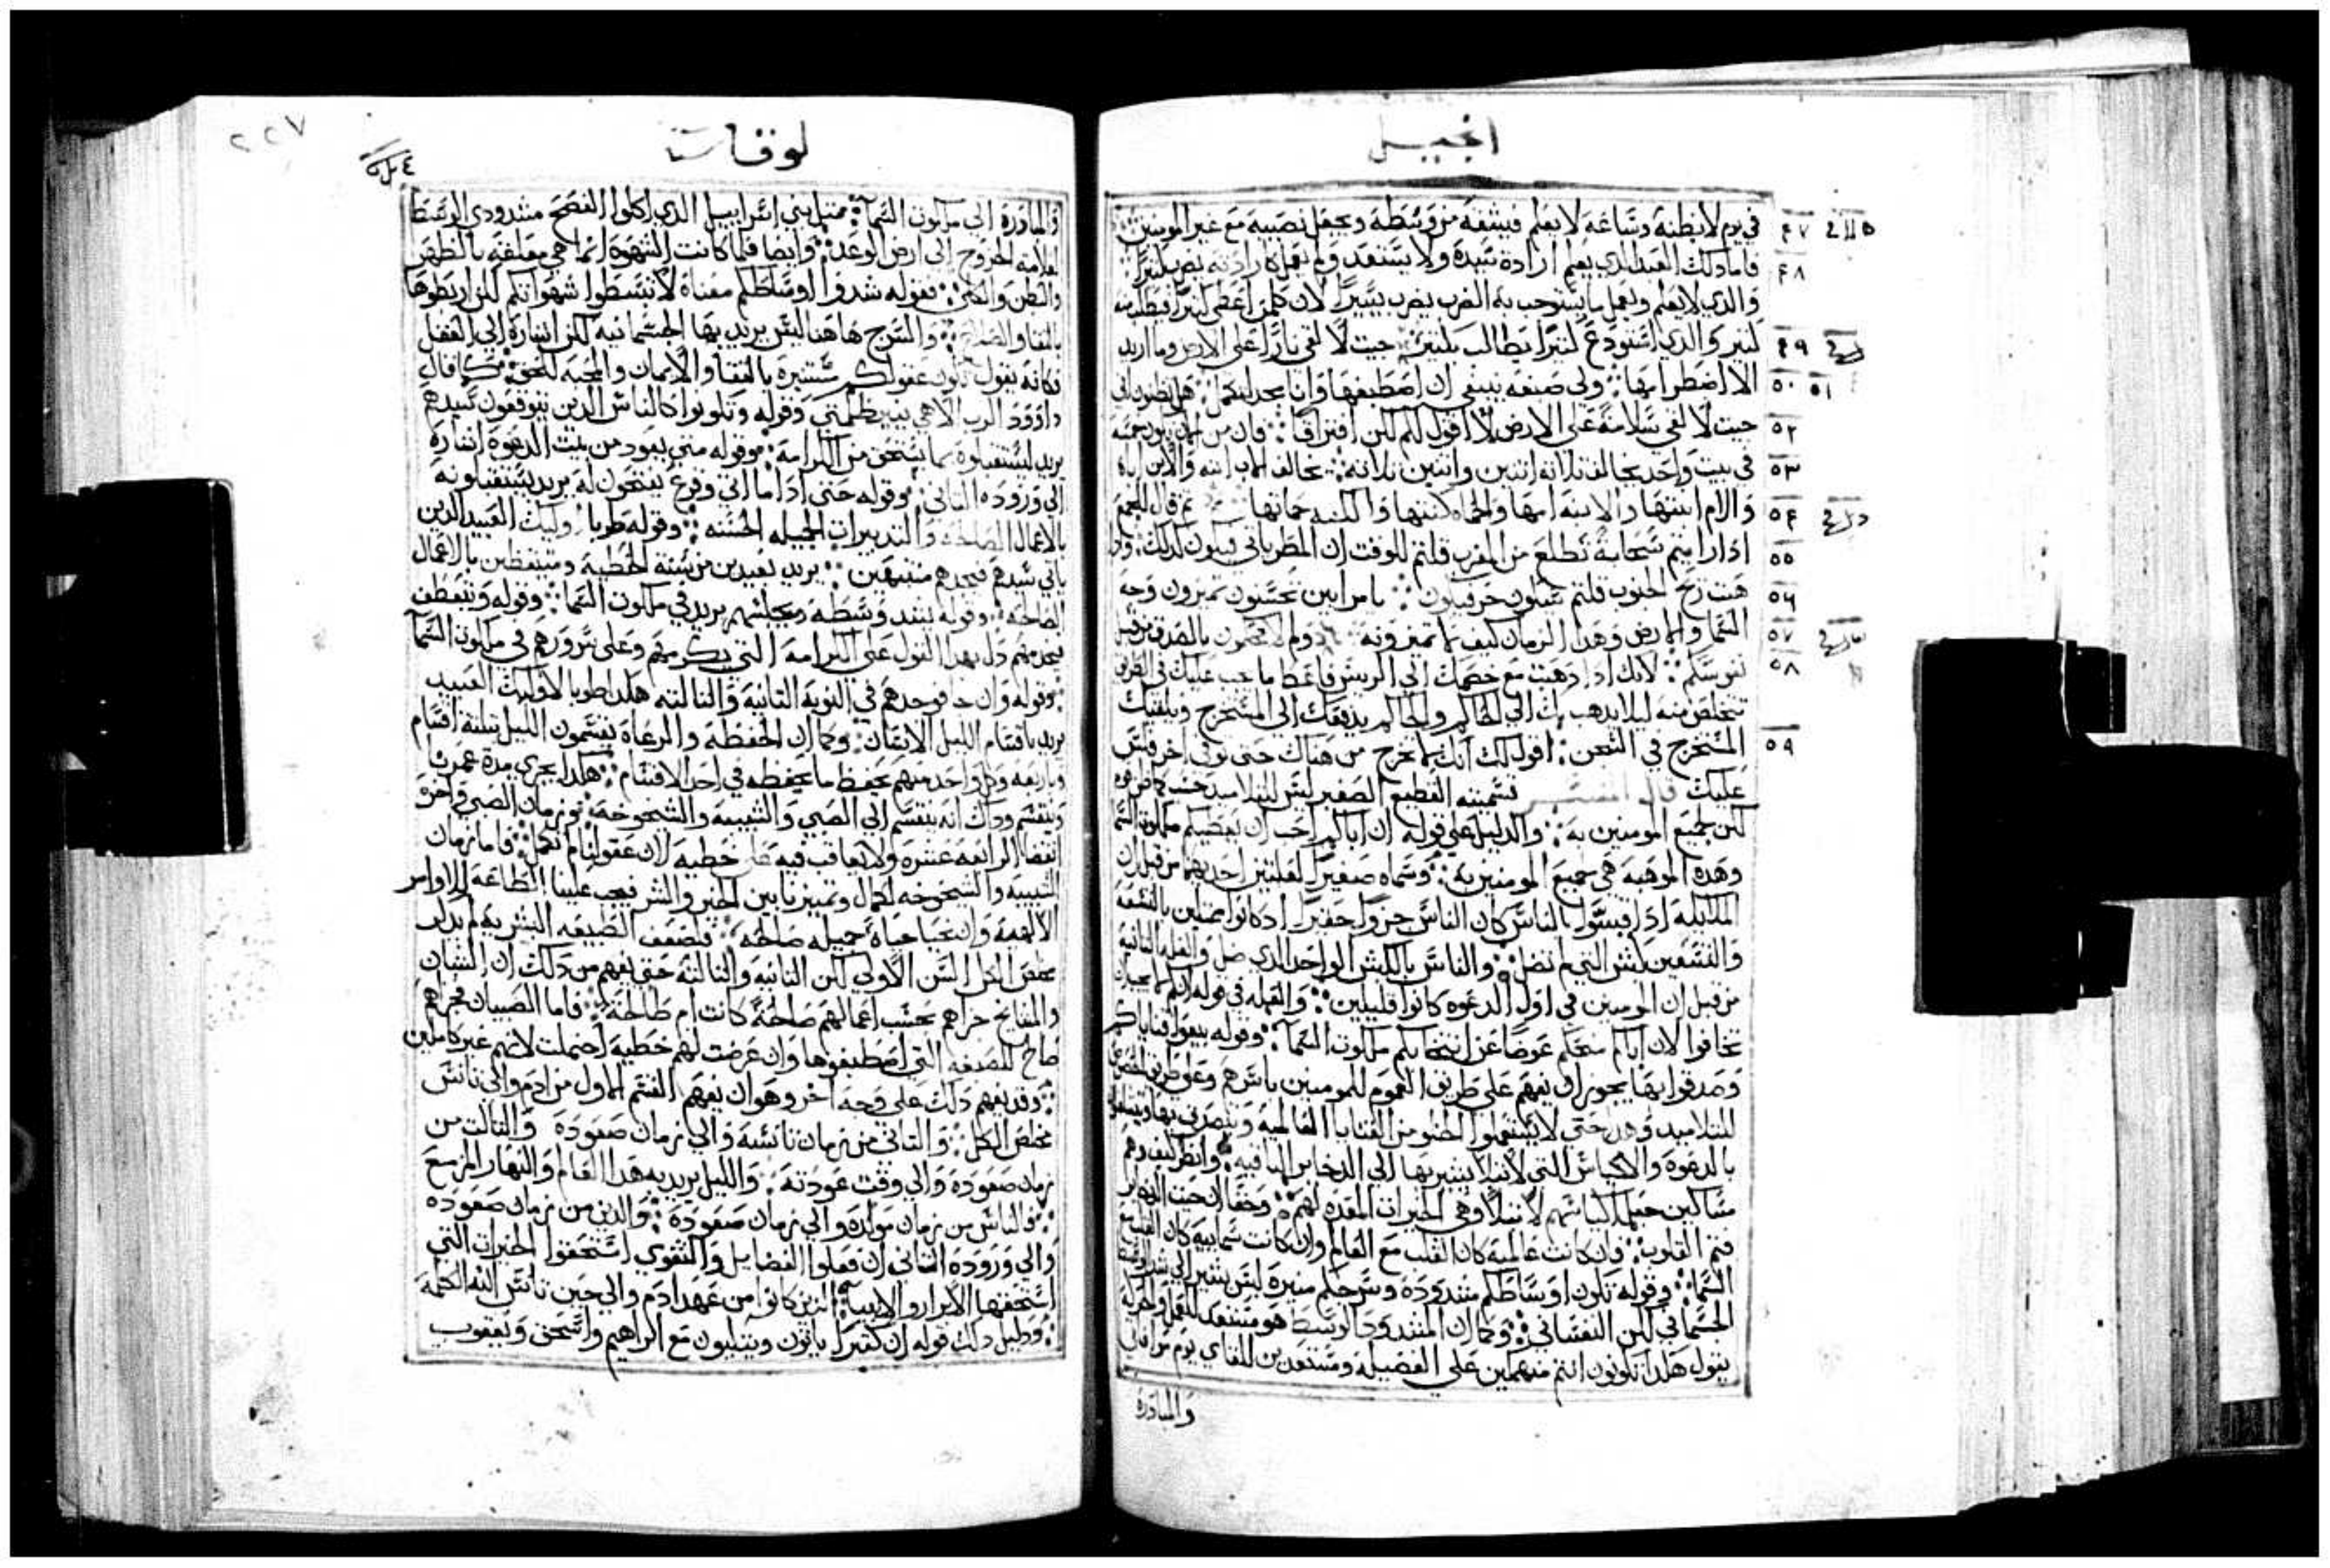 انجيل
في يوم لا يظنه وساعة لا يعلم فيشقه من وسطه ويجعل نصيبه مع غير المومنين
٤٧
فاما ذلك العبد الذي يعلم ارادة سيده ولا يستعد ولم يعمل كارادته يضرب كثيرا
٤٨
والذي لا يعلم ويعمل ما يستوجب به الضرب يضرب يسيرا لان كلمن اعطي كثيرا فيطلب منه
كثير والذي استودع كثيرا يطالب بكثير جيت لالقي نارا على الارض وما اريد
٤٩
الا اضطرامها ولي صبغه ينبغي ان اصطبغها وانا مجد لتكمل هل تظنون اني
٥٠ ٥١
جيت لالقي سلامة على الارض لا اقول لكم لكن افتراقا فان من الان يكون خمسه
٥٢
في بيت واحد يخالف تلاته اتنين واتنين تلاته يخالف الاب ابنه والابن اباه
٥٣
والام ابنتها والابنه امها والحماه لكنتها والكنه حماتها تم قال للجمع
٥٤
اذا رايتم سحابة تطلع من المغرب قلتم للوقت ان المطر ياتي فيكون كذلك
٥٥
هبت ريح الجنوب قلتم سيكون حر فيكون يا مرايين تحسنون تميزون وجه
٥٦
السما والارض وهذا الزمان كيف لا تميزونه ولم لا تحكمون بالصدق من قبل
٥٧
نفوسكم لانك اذا ذهبت مع خصمك الى الريس فاعط ما يجب عليك في الطريق
٥٨
تتخلص منه ليلا يذهب بك الى الحاكم والحاكم يدفعك الى المستخرج ويلقيك
المستخرج في السجن اقول لك انك لا تخرج من هناك حتى توفي اخر فلس
٥٩
عليك قال المفسر تسميته القطيع الصغير ليس للتلاميذ حسب
لكن لجميع المومنين به والدليل على قوله ان اباكم احب ان يعطيكم ملكوت السما
وهذه الموهبه هي لجميع المومنين به وسماه صغيرا لعلتين احديهما من قبل ان
الملايكة اذا قيسوا بالناس كان الناس جزوا حقيرا اذ كانوا ممثلين بالتسعه
والتسعين كبش التي لم تضل والناس بالكبش الواحد الذي ضل والعله التانيه
من قبل ان المومنين في اول الدعوه كانوا قليلين
تخافوا لان اباكم منحكم عوضا عن ملكوت السما وقوله بيعوا قناياكم
وصدقوا بها يجوز ان يفهم على طريق العموم للمومنين باسرهم وعلى طريق
للتلاميذ
بالدعوة والاكياس التي لا تبلا يشير بها الى الدخاير الباقيه وانظر كيف
مساكين جعل اكياسهم لا تبلا وهي الخيرات المعده لهم وحقا ان حيت الدخاير
فتم القلوب فان كانت عالميه كان القلب مع العالم وان كانت سماييه كان القلب مع
السما وقوله تكون اوساطكم مشدودة وسرجكم منيرة ليس يشير الى
الجسماني لكن النفساني وكما ان المشدود الوسط هو مستعد للعمل والحركه
يقول هكذا تكونون انتم منهمكين على الفضيلة ومستعدين للقاي يوم موافاتي
والمبادرة
٢٢٧
لوقا
والمبادرة الى ملكوت السما مثل بني اسراييل الذي اكلوا الفصح مشدودي الوسط
لعلامة الخروج الى ارض الوعد وايضا فلما كانت الشهوة انما هي معلقه بالظهر
والبطن والكلى بقوله شدوا اوساطكم معناه لا تبسطوا شهواتكم لكن اربطوها
بالتقا والصلاة والسرج هاهنا ليس يريد بها الجسمانيه لكن اشارة الى العقل
فكانه يقول تكون عقولكم مستنيرة بالتقا والايمان والمحبه للحق كما قال
داوود الرب الاهي يبيظلمتي وقوله وتكونوا كالناس الذين يتوقعون سيدهم
يريد لتستقبلوه بما يستحق من الكرامة وقوله متى يعود من بيت الدعوة اشارة
الى وروده التاني وقوله حتى اذا ما اتى وقرع يفتحون له يريد يستقبلونه
بالاعمال الصالحه والتدبيرات الجميله الحسنه وقوله طوبا اوليك العبيد الذين
ياتي سيدهم فيجدهم منتبهين يريد بعيدين من سنة الخطية ومتيقظين بالاعمال
الصالحه وقوله يشد وسطه ويجلسهم يريد في ملكوت السما وقوله
فيخدمهم دل بهذا القول على الكرامه التي يكرمهم وعلى سرورهم في ملكوت السما
وقوله وان جا فوجدهم في النوبة التانيه والتالته هكذا طوبا لاوليك العبيد
يريد باقسام الليل الاتقان وكما ان الحفظه والرعاة يقسمون الليل تلتة اقسام
وباربعه وكل واحد منهم يحفظ ما يحفظه في احد الاقسام هكذا يجري مدة عمرنا
وينقسم وذاك انه ينقسم الى الصبي والشبيبه والشيخوخه فزمان الصبي في اخره
انقضا الرابعه عشره ولا يعاقب فيه على خطيه لان عقولنا لم تكمل فاما زمان
الشبيبه والشيخوخه لكمال وتمييزنا بين الخير والشر فيجب علينا الطاعة للاوامر
الالهية وان نحيا حياة جميله صالحه فلضعف الطبيعه البشريه لم يذكر
مخلص الكل السن الاولى لكن التانيه والتالته حتى يفهم من ذلك ان الشبان
والمشايخ جزاهم بحسب اعمالهم صالحة كانت ام طالحة فاما الصبيان فجزاهم
صالح للصبغه التي اصطبغوها وان عرضت لهم خطية احتملت لانهم غير كاملين
وقد يفهم ذلك على وجه اخر وهو ان يفهم القسم الاول من ادم والى تانس
مخلص الكل والتاني من زمان تانسه والى زمان صعوده والتالت من
زمان صعوده والى وقت عودته والليل يريد به هذا العالم والنهار المزمع
فالناس من زمان مولده والى زمان صعوده والذين من زمان صعوده
والى وروده التاني ان فعلوا الفضايل والتقوى استحقوا الخيرات التي
استحقها الابرار والانبيا الذين كانوا من عهد ادم والى حين تانس الله الكلمة
ودليل ذلك قوله ان كثيرا ياتون ويتكيون مع ابراهيم واسحق ويعقوب